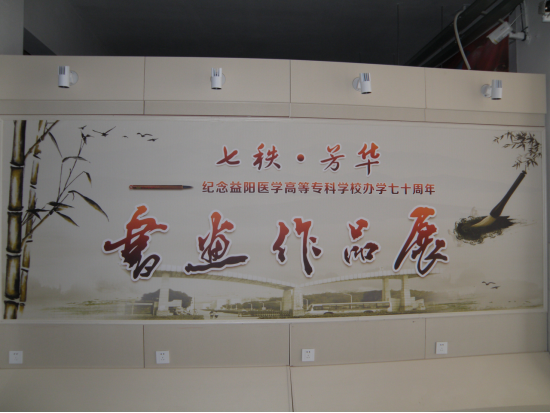 七秩·芳华
纪念益阳医学高等专科学校办学七十周年
書画作品展